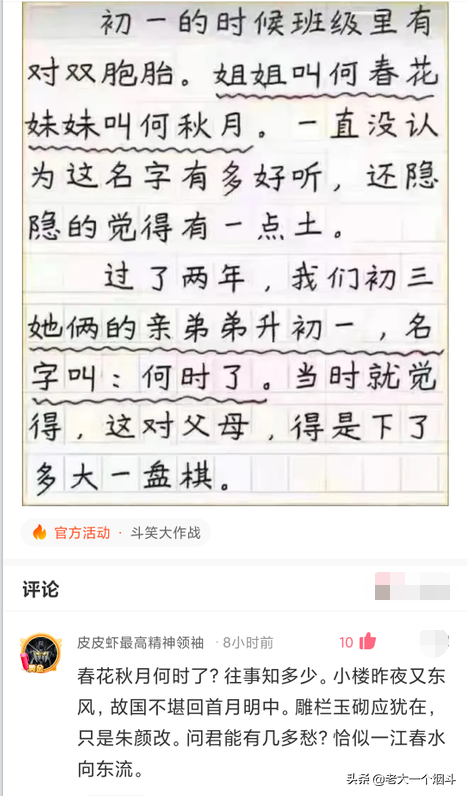 初一的时候班级里有
对双胞胎。姐姐叫何春花
妹妹叫何秋月。一直没认
为这名字有多好听，还隐
隐的觉得有一点土。
过了两年，我们初三
她俩的亲弟弟升初一，名
字叫：何时了。当时就觉
得，这对父母，得是下了
多大一盘棋。
官方活动 · 斗笑大作战
评论
皮皮虾最高精神领袖 · 8小时前
10
春花秋月何时了？往事知多少。小楼昨夜又东
风，故国不堪回首月明中。雕栏玉砌应犹在，
只是朱颜改。问君能有几多愁？恰似一江春水
向东流。
头条 @老大一个烟斗